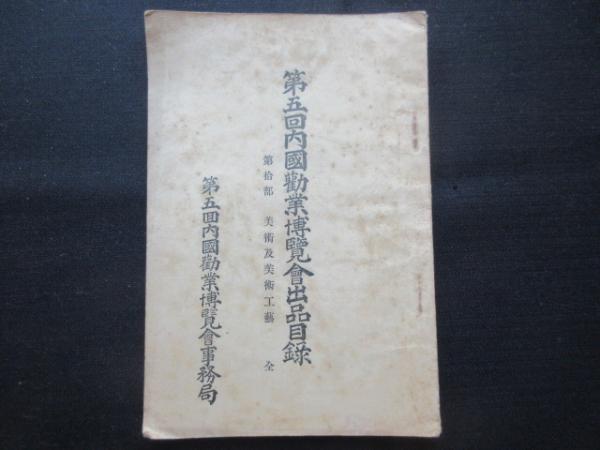 第五回内國勸業博覽會出品目錄
第拾部　美術及美術工藝　全
第五回内國勸業博覽會事務局